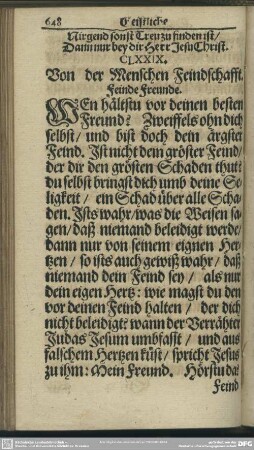 648 Geistliche
Nirgend sonst Treu zu finden ist/
Dann nur bey dir Herr Jesu Christ.
CLXXIX.
Von der Menschen Feindschafft.
Feinde Freunde.
WEn hältstu vor deinen besten
Freund? Zweiffels ohn dich
selbst/ und bist doch dein ärgster
Feind. Ist nicht dem gröster Feind/
der dir den grösten Schaden thut?
du selbst bringst dich umb deine Se-
ligkeit / ein Schad über alle Scha-
den. Ists wahr/ was die Weisen sa-
gen/ daß niemand beleidigt werde/
dann nur von seinem eignen Her-
tzen / so ists auch gewiß wahr/ daß
niemand dein Feind sey / als nur
dein eigen Hertz: wie magst du den
vor deinen Feind halten / der dich
nicht beleidigt? wann der Verräther
Judas Jesum umbfasst / und aus
falschem Hertzen küst/ spricht Jesus
zu ihm: Mein Freund. Hörstu da/
Feind
DFG